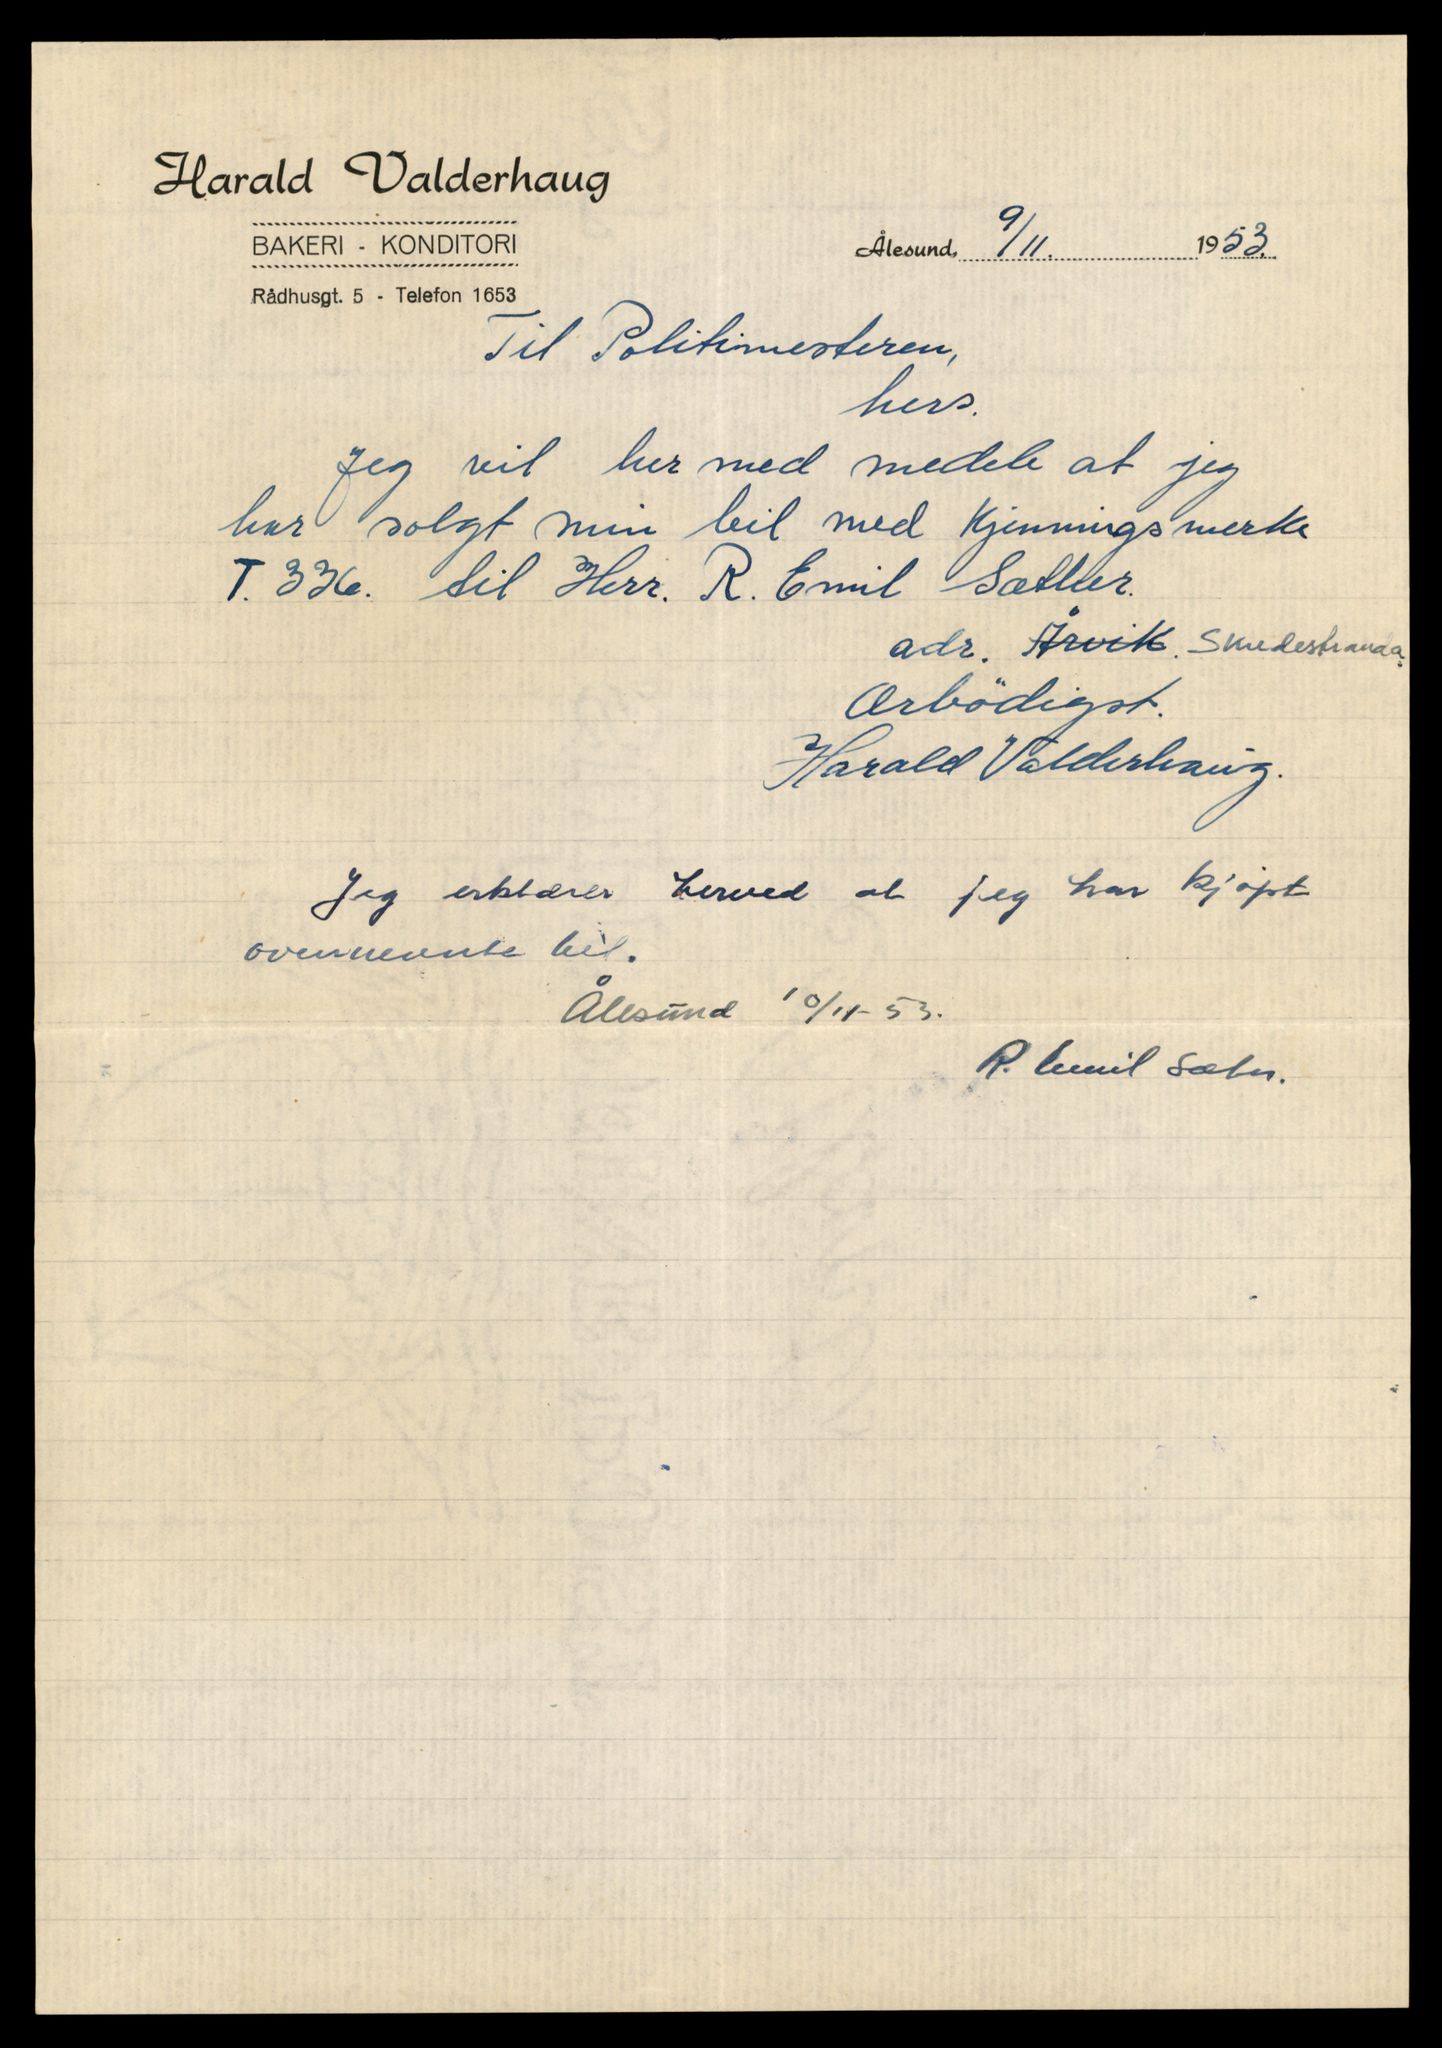 Harald Valderhaug
BAKERI - KONDITORI
Rådhusgt. 5 - Telefon 1653
Ålesund, 9/11. 1953.
Til Politimesteren,
hers.
Jeg vil her med medele at jeg
har solgt min bil med Kjenningsmerke
T. 336. til Herr. R. Emil Sæther.
adr. Årvik. Smedestranda.
Ærbödigst.
Harald Valderhaug.
Jeg erklærer herved at jeg har kjøpt
ovennevnte bil.
Ålesund 10/11-53.
R. Emil Sæter.